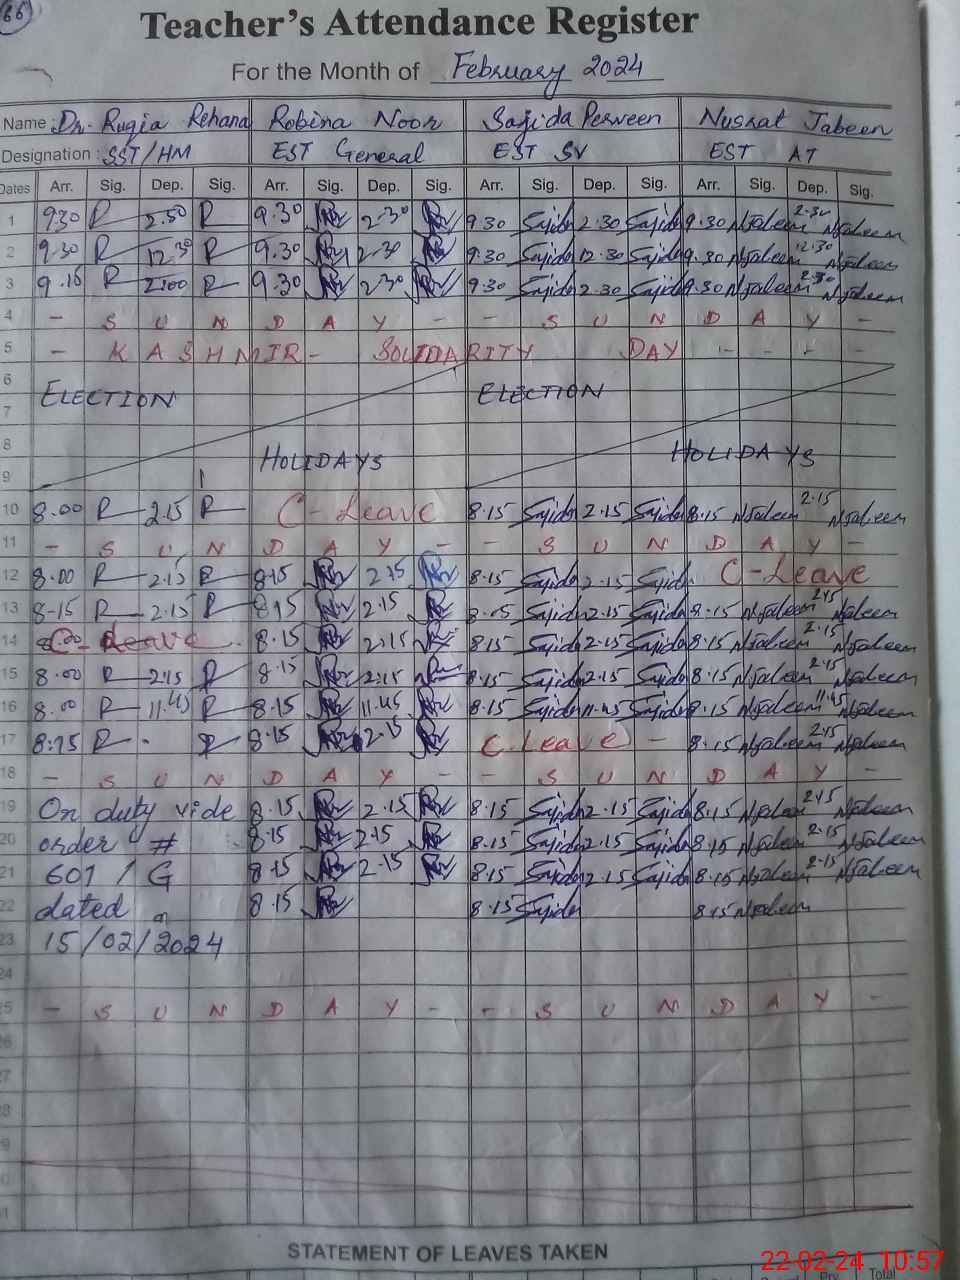 66
Teacher's Attendance Register
For the Month of February 2024
Name : Dr. Ruqia Rehana Robina Noor Sajida Perveen Nusrat Jabeen
Designation : SST/HM EST General EST SV EST AT
Dates Arr. Sig. Dep. Sig. Arr. Sig. Dep. Sig. Arr. Sig. Dep. Sig. Arr. Sig. Dep. Sig.
1 9.30 R 2.30 R 9.30 2.30 9.30 Sajida 2.30 Sajida 9.30 NJabeen 2.30 NJabeen
2 9.30 R 12.30 R 9.30 12.30 9.30 Sajida 12.30 Sajida 9.30 NJabeen 12.30 NJabeen
3 9.15 R 2:00 R 9.30 2.30 9.30 Sajida 2.30 Sajida 9.30 NJabeen 2.30 NJabeen
4 - S U N D A Y - - S U N D A Y -
5 - KASHMIR - SOLIDARITY DAY - - - -
6
ELECTION ELECTION
7
8
HOLIDAYS HOLIDAYS
9
10 8.00 R 2.15 R C - Leave 8.15 Sajida 2.15 Sajida 8.15 NJabeen 2.15 NJabeen
11 - S U N D A Y - - S U N D A Y -
12 8.00 R 2.15 R 8.15 2.15 8.15 Sajida 2.15 Sajida C - Leave
13 8-15 R 2.15 R 8.15 2.15 8.15 Sajida 2.15 Sajida 8.15 NJabeen 2.15 NJabeen
14 C - Leave 8.15 2.15 8.15 Sajida 2.15 Sajida 8.15 NJabeen 2.15 NJabeen
15 8.00 R 2.15 R 8.15 2.15 8.15 Sajida 2.15 Sajida 8.15 NJabeen 2.15 NJabeen
16 8.00 R 11.45 R 8.15 11.45 8.15 Sajida 11.45 Sajida 8.15 NJabeen 11.45 NJabeen
17 8:15 R - R 8.15 2.15 C - Leave - 8.15 NJabeen 2.15 NJabeen
18 - S U N D A Y - - S U N D A Y -
19 On duty vide 8.15 2.15 8.15 Sajida 2.15 Sajida 8.15 NJabeen 2.15 NJabeen
20 order # 8.15 2.15 8.15 Sajida 2.15 Sajida 8.15 NJabeen 2.15 NJabeen
21 601 / G 8.15 2.15 8.15 Sajida 2.15 Sajida 8.15 NJabeen 2.15 NJabeen
22 dated 8.15 8.15 Sajida 8.15 NJabeen
23 15/02/2024
24
25 - S U N D A Y - - S U N D A Y -
26
27
28
STATEMENT OF LEAVES TAKEN
Total
22-02-24 10:57